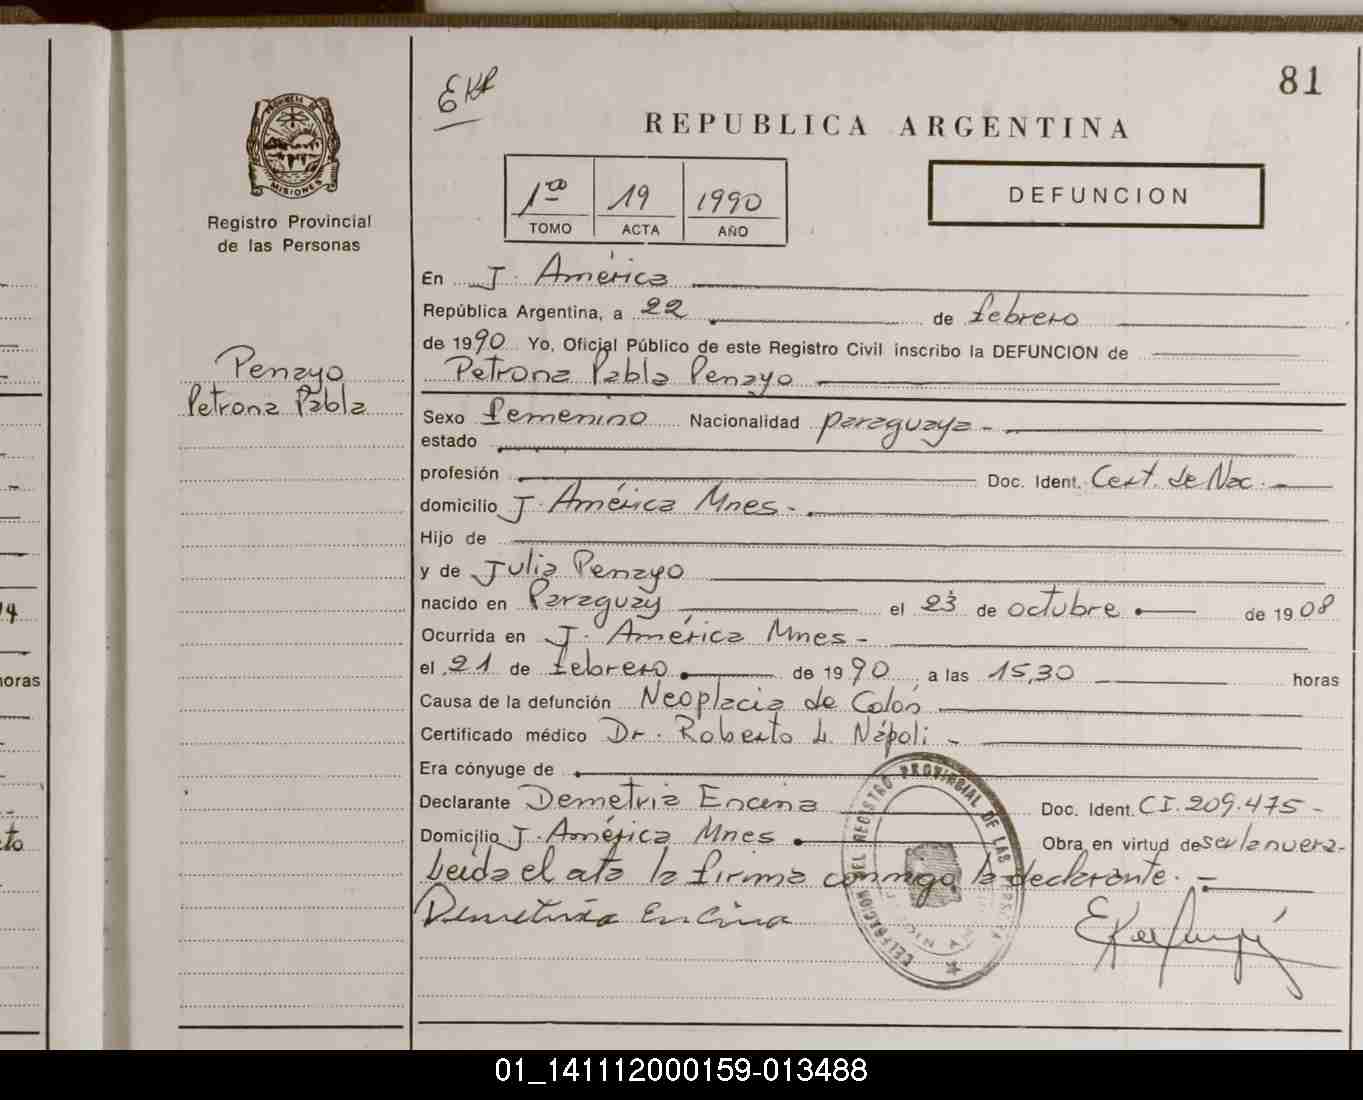 81
EKP
REPUBLICA ARGENTINA
PROVINCIA DE
MISIONES
Registro Provincial
de las Personas
1ª 19 1990
TOMO ACTA AÑO
DEFUNCION
En J. América
República Argentina, a 22 de febrero
de 1990 Yo, Oficial Público de este Registro Civil inscribo la DEFUNCION de
Petrona Pabla Penayo
Penayo
Petrona Pabla
Sexo femenino Nacionalidad paraguaya -
estado
profesión Doc. Ident. Cert. de Nac. -
domicilio J. América Mnes -
Hijo de
y de Julia Penayo
nacido en Paraguay el 23 de octubre de 1908
Ocurrida en J. América Mnes -
el 21 de febrero de 1990 a las 15,30 horas
Causa de la defunción Neoplacia de Colon
Certificado médico Dr. Roberto L. Nápoli -
Era cónyuge de
Declarante Demetria Encina Doc. Ident. CI. 209.475 -
Domicilio J. América Mnes Obra en virtud de ser la nuera -
Leída el ata la firma conmigo la declarante. -
Demetria Encina
DELEGACION DEL REGISTRO PROVINCIAL DE LAS PERSONAS
horas
01_141112000159-013488